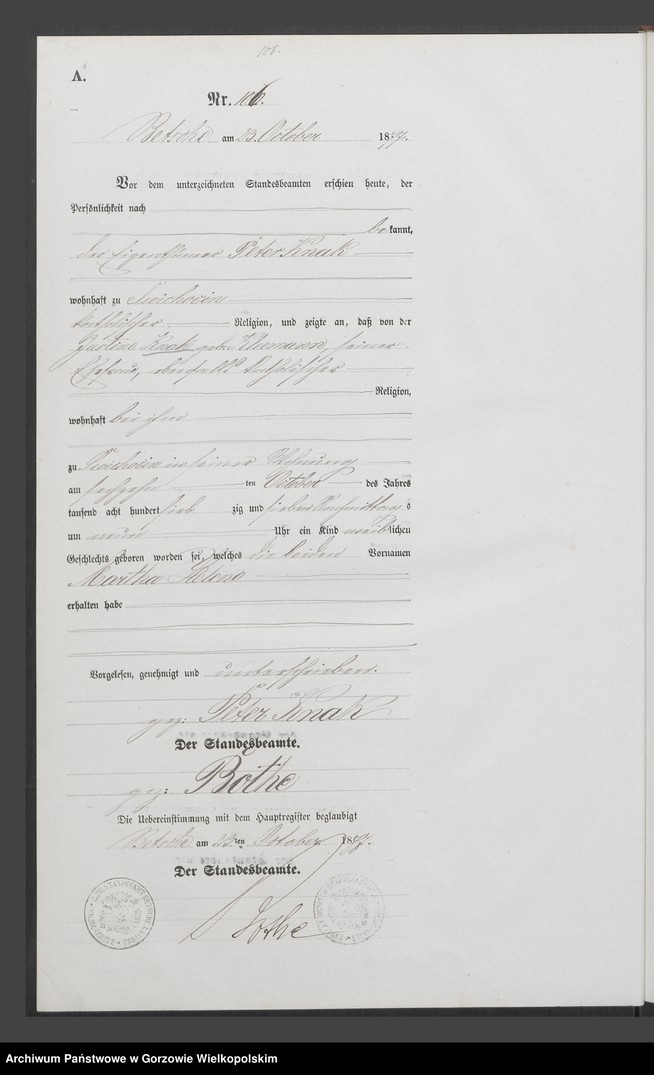 108.
A.
Nr. 106.
Betsche am 23. October 1877.
Vor dem unterzeichneten Standesbeamten erschien heute, der
Persönlichkeit nach
bekannt,
der Eigenthümer Peter Knak
wohnhaft zu Swichocin
katholischer Religion, und zeigte an, daß von der
Justine Knak geborne Kleemann, seiner
Ehefrau, ebenfalls katholischer
Religion,
wohnhaft bei ihm
zu Swichocin in seiner Wohnung
am sechzehn ten October des Jahres
tausend acht hundert sieb zig und sieben Vormittags
um neun Uhr ein Kind weiblichen
Geschlechts geboren worden sei, welches die beiden Vornamen
Martha Helene
erhalten habe
Vorgelesen, genehmigt und unterschrieben.
gez: Peter Knak
Der Standesbeamte.
gez: Bothe
Die Uebereinstimmung mit dem Hauptregister beglaubigt
Betsche am 23ten October 1877.
Der Standesbeamte.
Bothe
Archiwum Państwowe w Gorzowie Wielkopolskim